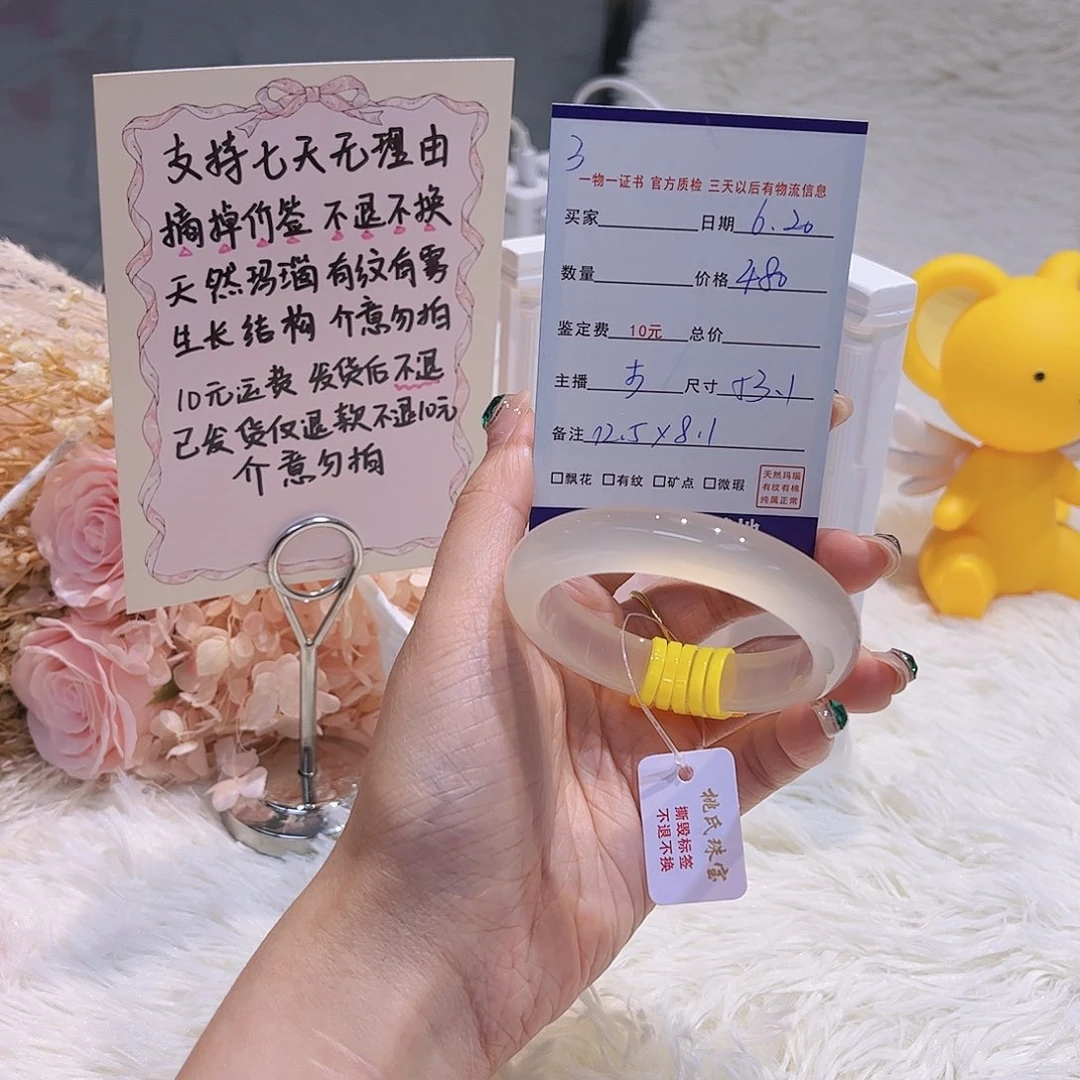 支持七天无理由
摘掉价签 不退不换
天然玛瑙有纹有雾
生长结构 介意勿拍
10元运费 发货后不退
已发货仅退款不退10元
介意勿拍
3
一物一证书 官方质检 三天以后有物流信息
买家 日期 6.20
数量 价格 480
鉴定费 10元 总价
主播 尺寸 53.1
备注 12.5×8.1
□飘花 □有纹 □矿点 □微瑕
天然玛瑙
有纹有棉
纯属正常
桃氏珠宝
撕毁标签
不退不换